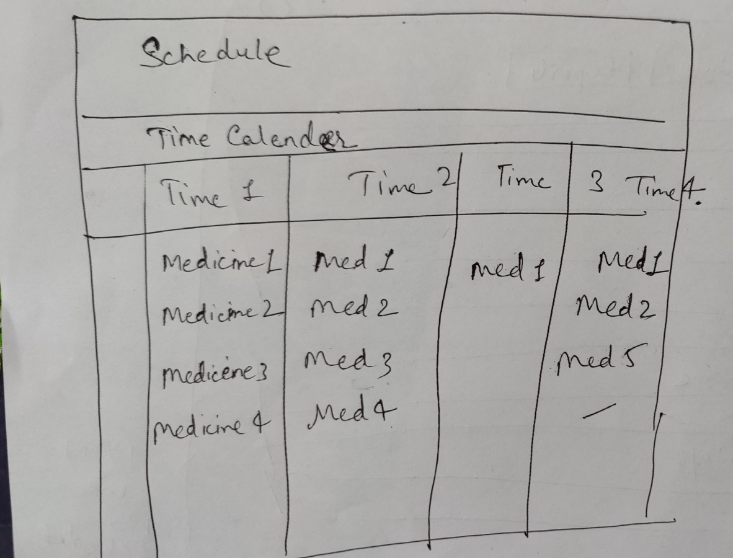 Schedule
Time Calender
Time 1 Time 2 Time 3 Time 4.
Medicine1 Med 1 Med 1 Med1
Medicine 2 Med 2 Med 2
Medicene3 Med 3 Med 5
Medicine 4 Med 4 —